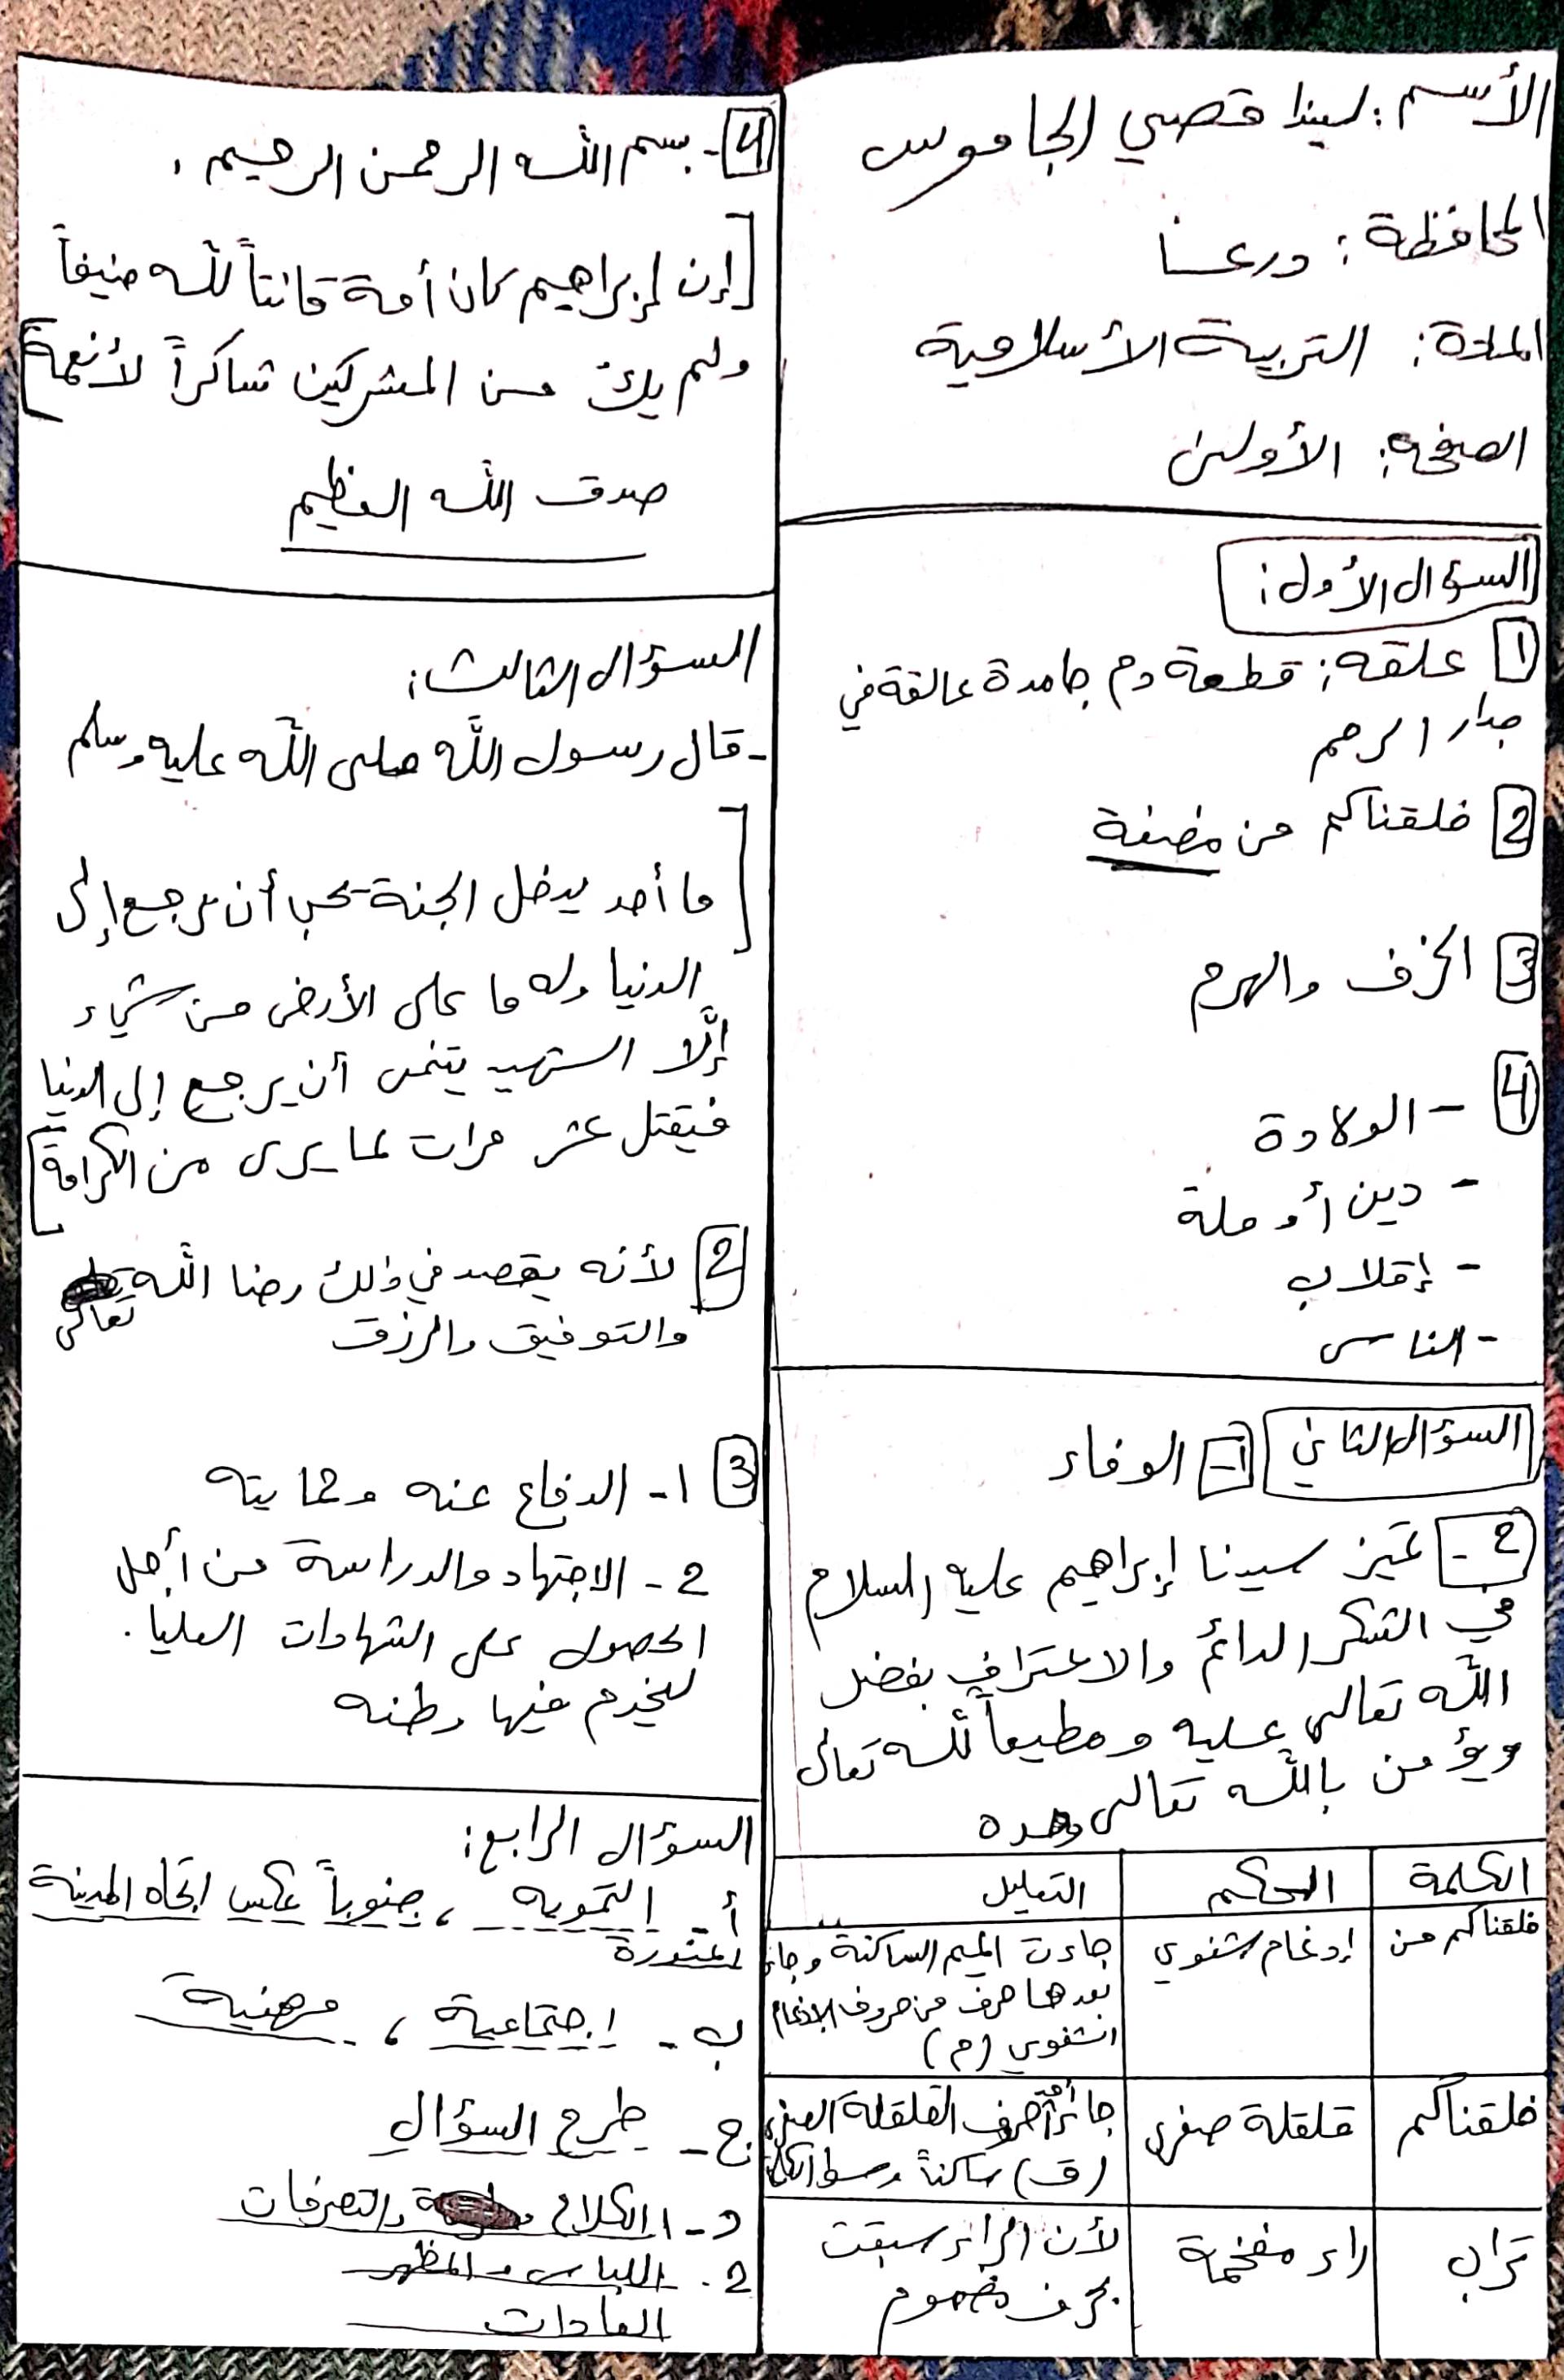 الأسم: ليندا قصي الجاموس
المحافظة: درعا
المادة: التربية الأسلامية
الصفحة: الأولى
السؤال الأول:
1 علقه: قطعة دم جامدة عالقة في
جدار الرحم
2 خلقناكم من مضغة
3 الخرف والهرم
4 - الولادة
- دين أو ملة
- إقلاب
- الناس
السؤال الثاني 1- الوفاء
2- تميز سيدنا إبراهيم عليه السلام
في الشكر الدائم والاعتراف بفضل
الله تعالى عليه ومطيعاً لله تعالى
ويؤمن بالله تعالى وحده
الكلمة الحكم التعليل
خلقناكم من إدغام شفوي جاءت الميم الساكنة وجاء
بعدها حرف من حروف الإدغام
الشفوي (م)
خلقناكم قلقلة صغرى جاء أحد أحرف القلقلة الصغرى
(ق) ساكناً وسط الكلمة
تراب راء مفخمة لأن الراء سبقت
بحرف مضموم
4- بسم الله الرحمن الرحيم
[إن إبراهيم كان أمة قانتاً لله حنيفاً
ولم يك من المشركين شاكراً لأنعمة]
صدق الله العظيم
السؤال الثالث:
- قال رسول الله صلى الله عليه وسلم
[ما أحد يدخل الجنة يحب أن يرجع إلى
الدنيا وله ما على الأرض من شيء
إلَّا الشهيد يتمنى أن يرجع إلى الدنيا
فيقتل عشر مرات لما يرى من الكرامة]
2 لأنه يقصد في ذلك رضا الله تعالى
والتوفيق والرزق
3 1- الدفاع عنه وحمايته
2- الاجتهاد والدراسة من أجل
الحصول على الشهادات العليا.
ليخدم فيها وطنه
السؤال الرابع:
أ- التمويه، جنوباً عكس اتجاه المدينة
المنورة
ب- اجتماعية، مهنية
ج- طرح السؤال
د- 1 الكلام والتصرفات
2. اللباس والمظهر
العادات